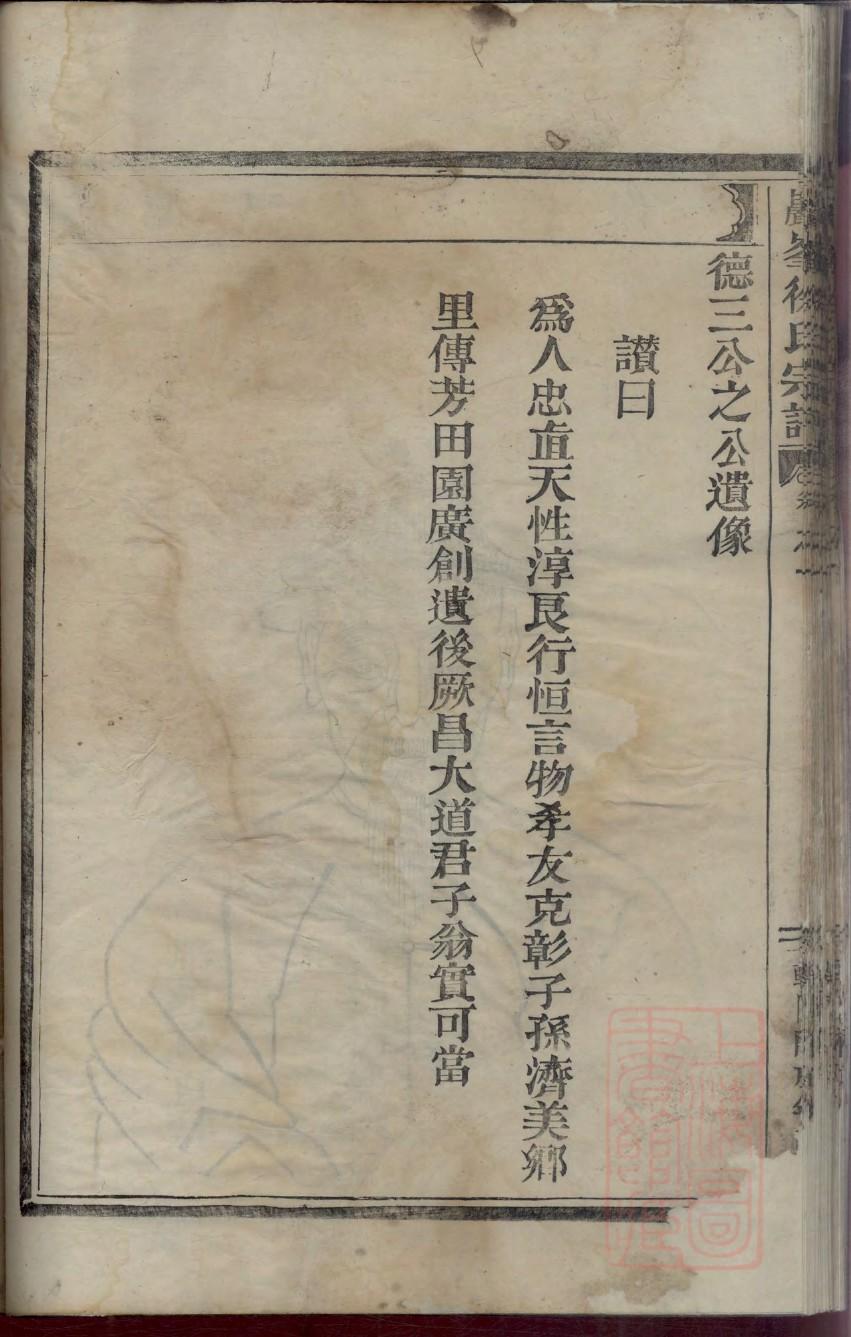 德三公之公遺像
讃曰
爲人忠直天性淳良行恒言物孝友克彰子孫濟美鄉
里傳芳田園廣創遺後厥昌大道君子翁實可當
峯徐氏宗譜
上海圖書館藏